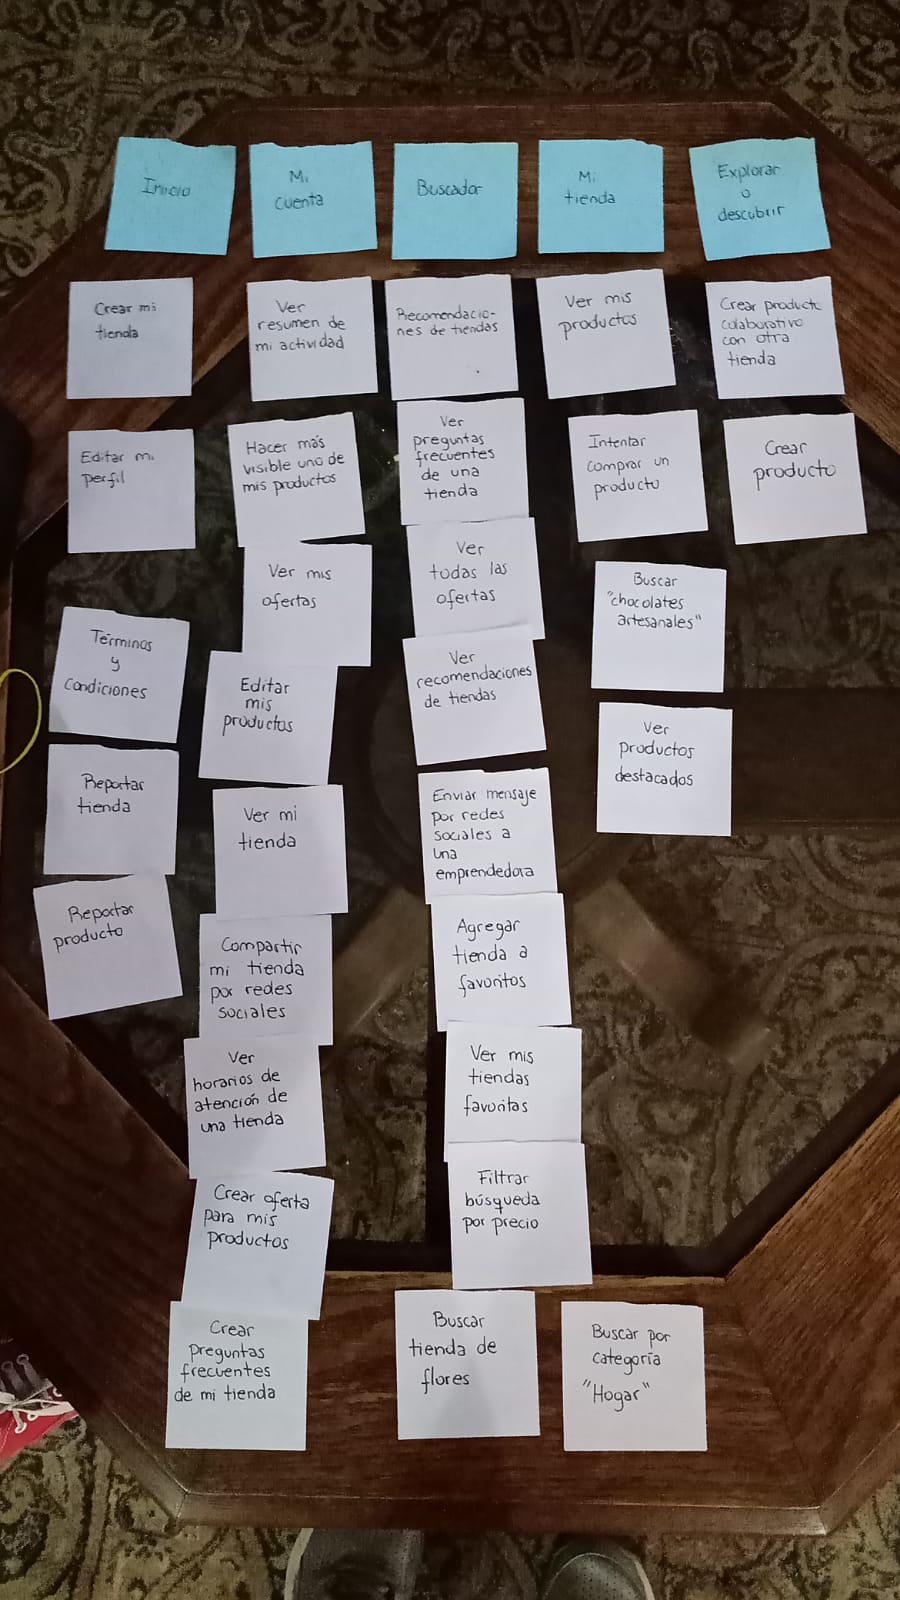 Inicio
Mi
cuenta
Buscador
Mi
tienda
Explorar
o
descubrir
Crear mi
tienda
Editar mi
perfil
Términos
y
condiciones
Reportar
tienda
Reportar
producto
Ver
resumen de
mi actividad
Hacer más
visible uno de
mis productos
Ver mis
ofertas
Editar
mis
productos
Ver mi
tienda
Compartir
mi tienda
por redes
sociales
Ver
horarios de
atención de
una tienda
Crear oferta
para mis
productos
Crear
preguntas
frecuentes
de mi tienda
Recomendacio-
nes de tiendas
Ver
preguntas
frecuentes
de una
tienda
Ver
todas las
ofertas
Ver
recomendaciones
de tiendas
Enviar mensaje
por redes
sociales a
una
emprendedora
Agregar
tienda a
favoritos
Ver mis
tiendas
favoritas
Filtrar
búsqueda
por precio
Buscar
tienda de
flores
Ver mis
productos
Intentar
comprar un
producto
Buscar
"chocolates
artesanales"
Ver
productos
destacados
Buscar por
categoría
"Hogar"
Crear producto
colaborativo
con otra
tienda
Crear
producto